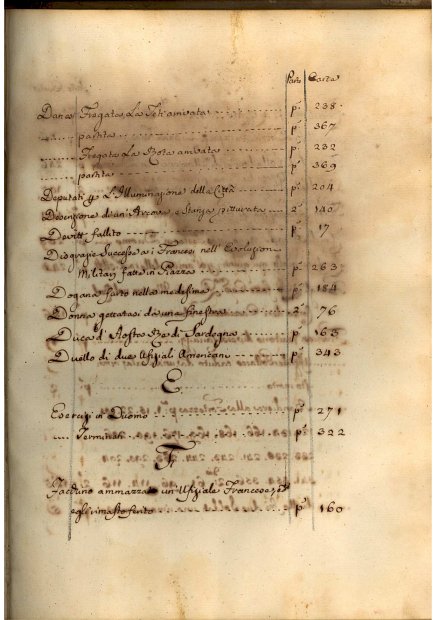 Parte Carta
Danese Fregata La arrivata p.a 238
partita p.a 367
Fregata La Rota arrivata p.a 232
partita p.a 369
Deputati p L'Illuminazione della Città p.a 204
Devozione di un' e Stanza pitturata 2.a 140
Devitt fallito p.a 17
Disgrazie Successe a i Francesi nell' Evoluzion
Militari fatte in Piazza p.a 263
Dogana furto nella medesima p.a 184
Donna gettatasi da una finestra 2.a 76
Duca d'Aosta di Sardegna p.a 163
Duello di due Ufiziali Americani p.a 343
E
Esercizi in Duomo p.a 271
Terminati p.a 322
F
Facchino ammazza un Ufiziale Francese, ed
egli rimasto ferito p.a 160